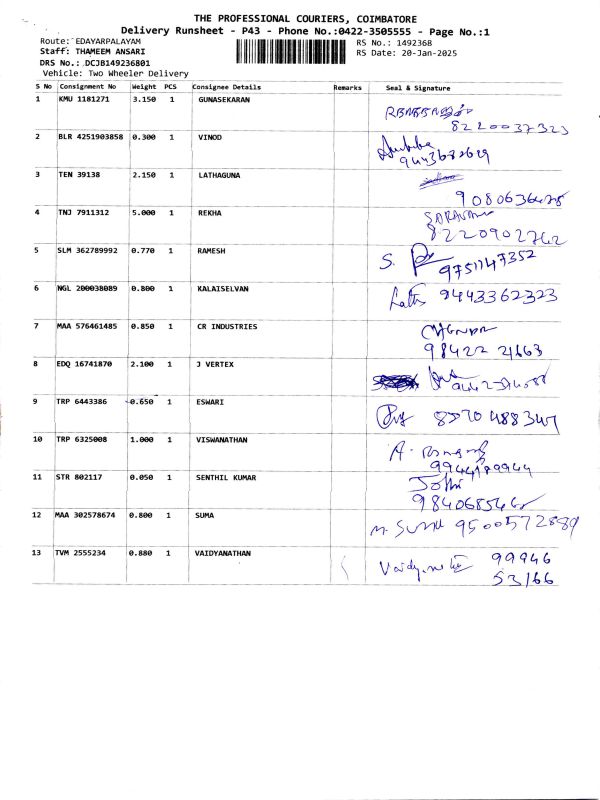 THE PROFESSIONAL COURIERS, COIMBATORE
Delivery Runsheet - P43 - Phone No.:0422-3505555 - Page No.:1
Route: EDAYARPALAYAM RS No.: 1492368
Staff: THAMEEM ANSARI RS Date: 20-Jan-2025
DRS No.: DCJB149236801
Vehicle: Two Wheeler Delivery
S No Consignment No Weight PCS Consignee Details Remarks Seal & Signature
1 KMU 1181271 3.150 1 GUNASEKARAN
8220037323
2 BLR 4251903858 0.300 1 VINOD
3 TEN 39138 2.150 1 LATHAGUNA
4 TNJ 7911312 5.000 1 REKHA
8220902762
5 SLM 362789992 0.770 1 RAMESH S.
9751147352
6 NGL 200038089 0.800 1 KALAISELVAN 9443362323
7 MAA 576461485 0.850 1 CR INDUSTRIES
98422 21663
8 EDQ 16741870 2.100 1 J VERTEX
9 TRP 6443386 0.650 1 ESWARI
10 TRP 6325008 1.000 1 VISWANATHAN A.
11 STR 802117 0.050 1 SENTHIL KUMAR
12 MAA 302578674 0.800 1 SUMA
13 TVM 2555234 0.880 1 VAIDYANATHAN 99946
53166